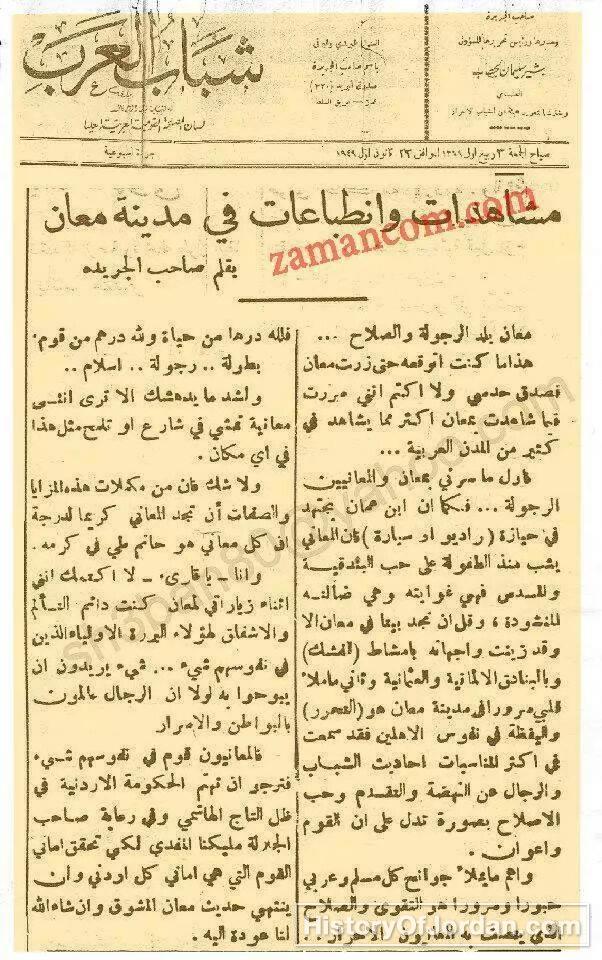 صاحب الجريدة
ومديرها ورئيس تحريرها المسؤول
بشير سليمان
باسم صاحب الجريدة
شباب العرب
جريدة اسبوعية
صباح الجمعة ٣ ربيع اول ١٣٦٩ الموافق ٢٣ كانون اول ١٩٤٩
مشاهدات وانطباعات في مدينة معان
zamancom.com
بقلم صاحب الجريده
معان بلد الرجولة والصلاح ...
هذا ما كنت اتوقعه حتى زرت معان
فصدق حدسي ولا اكتم انني سررت
فما شاهدت بمعان اكثر مما يشاهد في
كثير من المدن العربية ...
فاول ما سرني بمعان والمعانيين
الرجولة ... فكما ان ابن عمان يجتهد
في حيازة (راديو او سيارة) فان المعاني
يشب منذ الطفولة على حب البندقية
والمسدس فهي غوايته وهي ضالته
المنشودة ، وقل ان تجد بيتا في معان الا
وقد زينت واجهاته بامشاط (الفشك)
وبالبنادق الالمانية والعثمانية وثاني ما ملأ
قلبي سرورا في مدينة معان هو (التحرر)
واليقظة في نفوس الاهلين فقد سمعت
في اكثر المناسبات احاديث الشباب
والرجال عن النهضة والتقدم وحب
الاصلاح بصورة تدل على ان القوم
واعون .
واهم ما يملأ جوانح كل مسلم وعربي
حبورا وسرورا هو التقوى والصلاح
الذي يتصف به المعانيون الاحرار ..
فلله درها من حياة ولله درهم من قوم.
بطولة .. رجولة .. اسلام ..
واشد ما يدهشك الا ترى انثى
معانية تمشي في شارع او تلمح مثل هذا
في اي مكان .
ولا شك فان من مكملات هذه المزايا
والصفات أن تجد المعاني كريما لدرجة
ان كل معاني هو حاتم طي في كرمه .
وانا - يا قارىء - لا اكتمك انني
اثناء زياراتي لمعان كنت دائم التألم
والاشفاق لهؤلاء البررة الاولياء الذين
في نفوسهم شيء .. شيء يريدون ان
يبوحوا به لولا ان الرجال
بالبواطن والاسرار
فالمعانيون قوم في نفوسهم شيء
فنرجو ان تهتم الحكومة الاردنية في
ظل التاج الهاشمي وفي رعاية صاحب
الجلالة مليكنا المفدى لكي تحقق اماني
القوم التي هي اماني كل اردني وان
ينتهي حديث معان المشوق وان شاء الله
لنا عودة اليه .
HistoryOfJordan.com